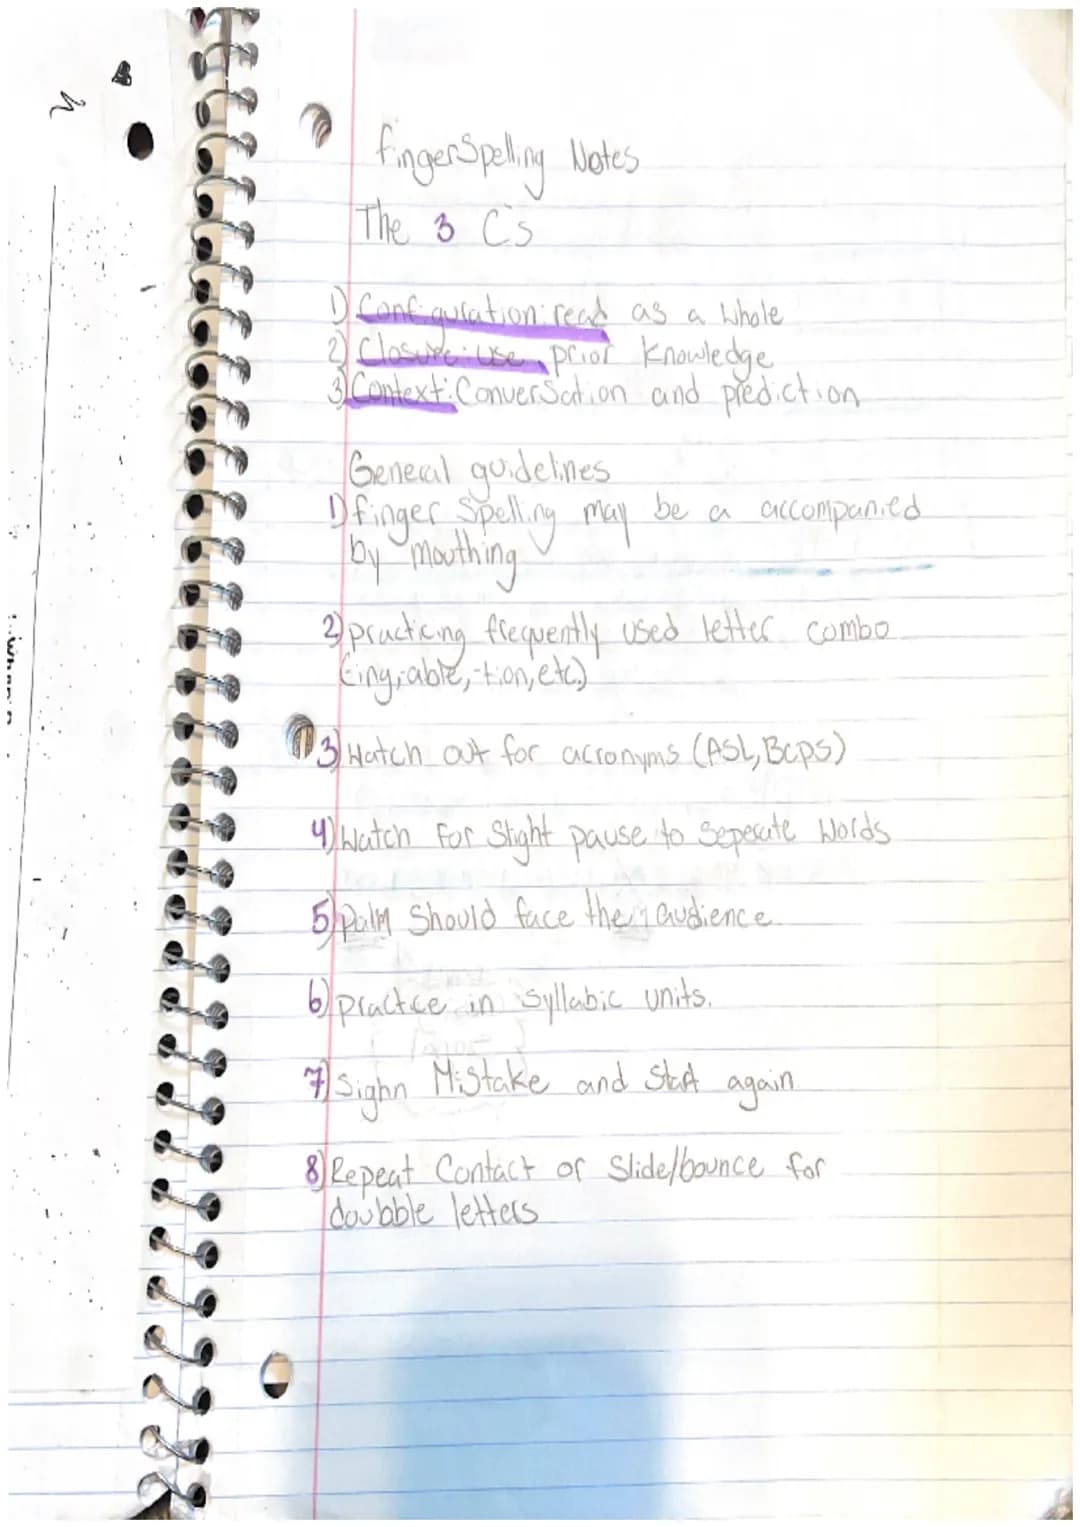 fingerspelling Notes
The 3 C's
1) Configuration: read as a whole
2) Closure: use prior knowledge
3) Context: Conversation and prediction
General guidelines
1) finger spelling may be a accompanied
by mouthing
2) practicing frequently used letter combo
(-ing, -able, -tion, etc.)
3) Watch out for acronyms (ASL, BcpS)
4) Watch for Slight pause to Seperate Words
5) Palm Should face the audience.
6) practice in syllabic units.
7) Sighn Mistake and Start again
8) Repeat Contact or Slide/bounce for
doubble letters